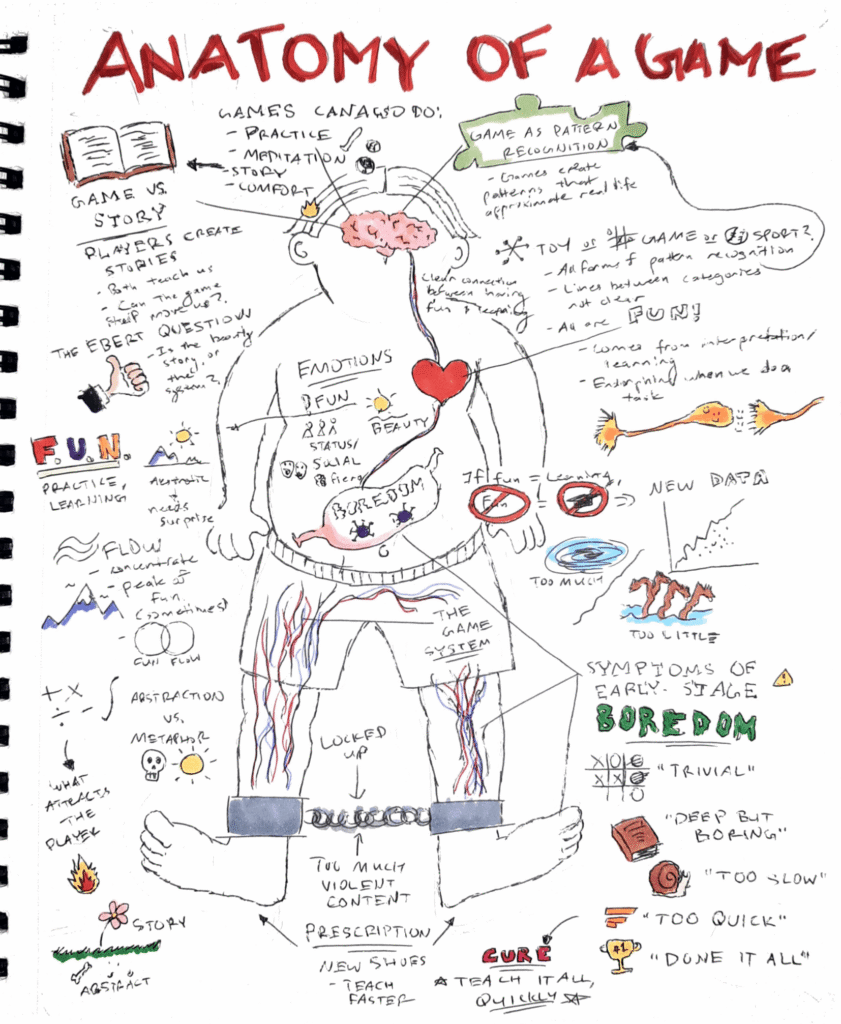 ANATOMY OF A GAME
GAMES CAN ALSO DO:
- PRACTICE
- MEDITATION
- STORY
- COMFORT
GAME AS PATTERN
RECOGNITION
- Games create
patterns that
approximate real life
GAME VS.
STORY
PLAYERS CREATE
STORIES
- Both teach us
- Can the game
itself move us?
THE EBERT QUESTION
- Is the beauty
story, or
the
system?
Clear connection
between having
fun & learning
TOY or # GAME or SPORT?
- All forms of pattern recognition
- Lines between categories
not clear
- All are FUN!
- Comes from interpretation/
learning
- Endorphins when we do a
task
EMOTIONS
FUN
BEAUTY
STATUS/
SOCIAL
fiero
BOREDOM
F.U.N.
PRACTICE,
LEARNING
Aesthetic
+
needs
surprise
FLOW
- concentrate
- peak of
fun
(sometimes)
- FUN FLOW
If fun = learning,
Fun = =>
NEW DATA
TOO MUCH
TOO LITTLE
THE
GAME
SYSTEM
+ × ÷ - ∫
ABSTRACTION
VS.
METAPHOR
WHAT
ATTRACTS
THE
PLAYER
STORY
ABSTRACT
LOCKED
UP
TOO MUCH
VIOLENT
CONTENT
PRESCRIPTION
NEW SHOES
- TEACH
FASTER
SYMPTOMS OF
EARLY-STAGE
BOREDOM
X O
X X
O
"TRIVIAL"
"DEEP BUT
BORING"
"TOO SLOW"
"TOO QUICK"
#1
"DONE IT ALL"
CURE
TEACH IT ALL,
QUICKLY